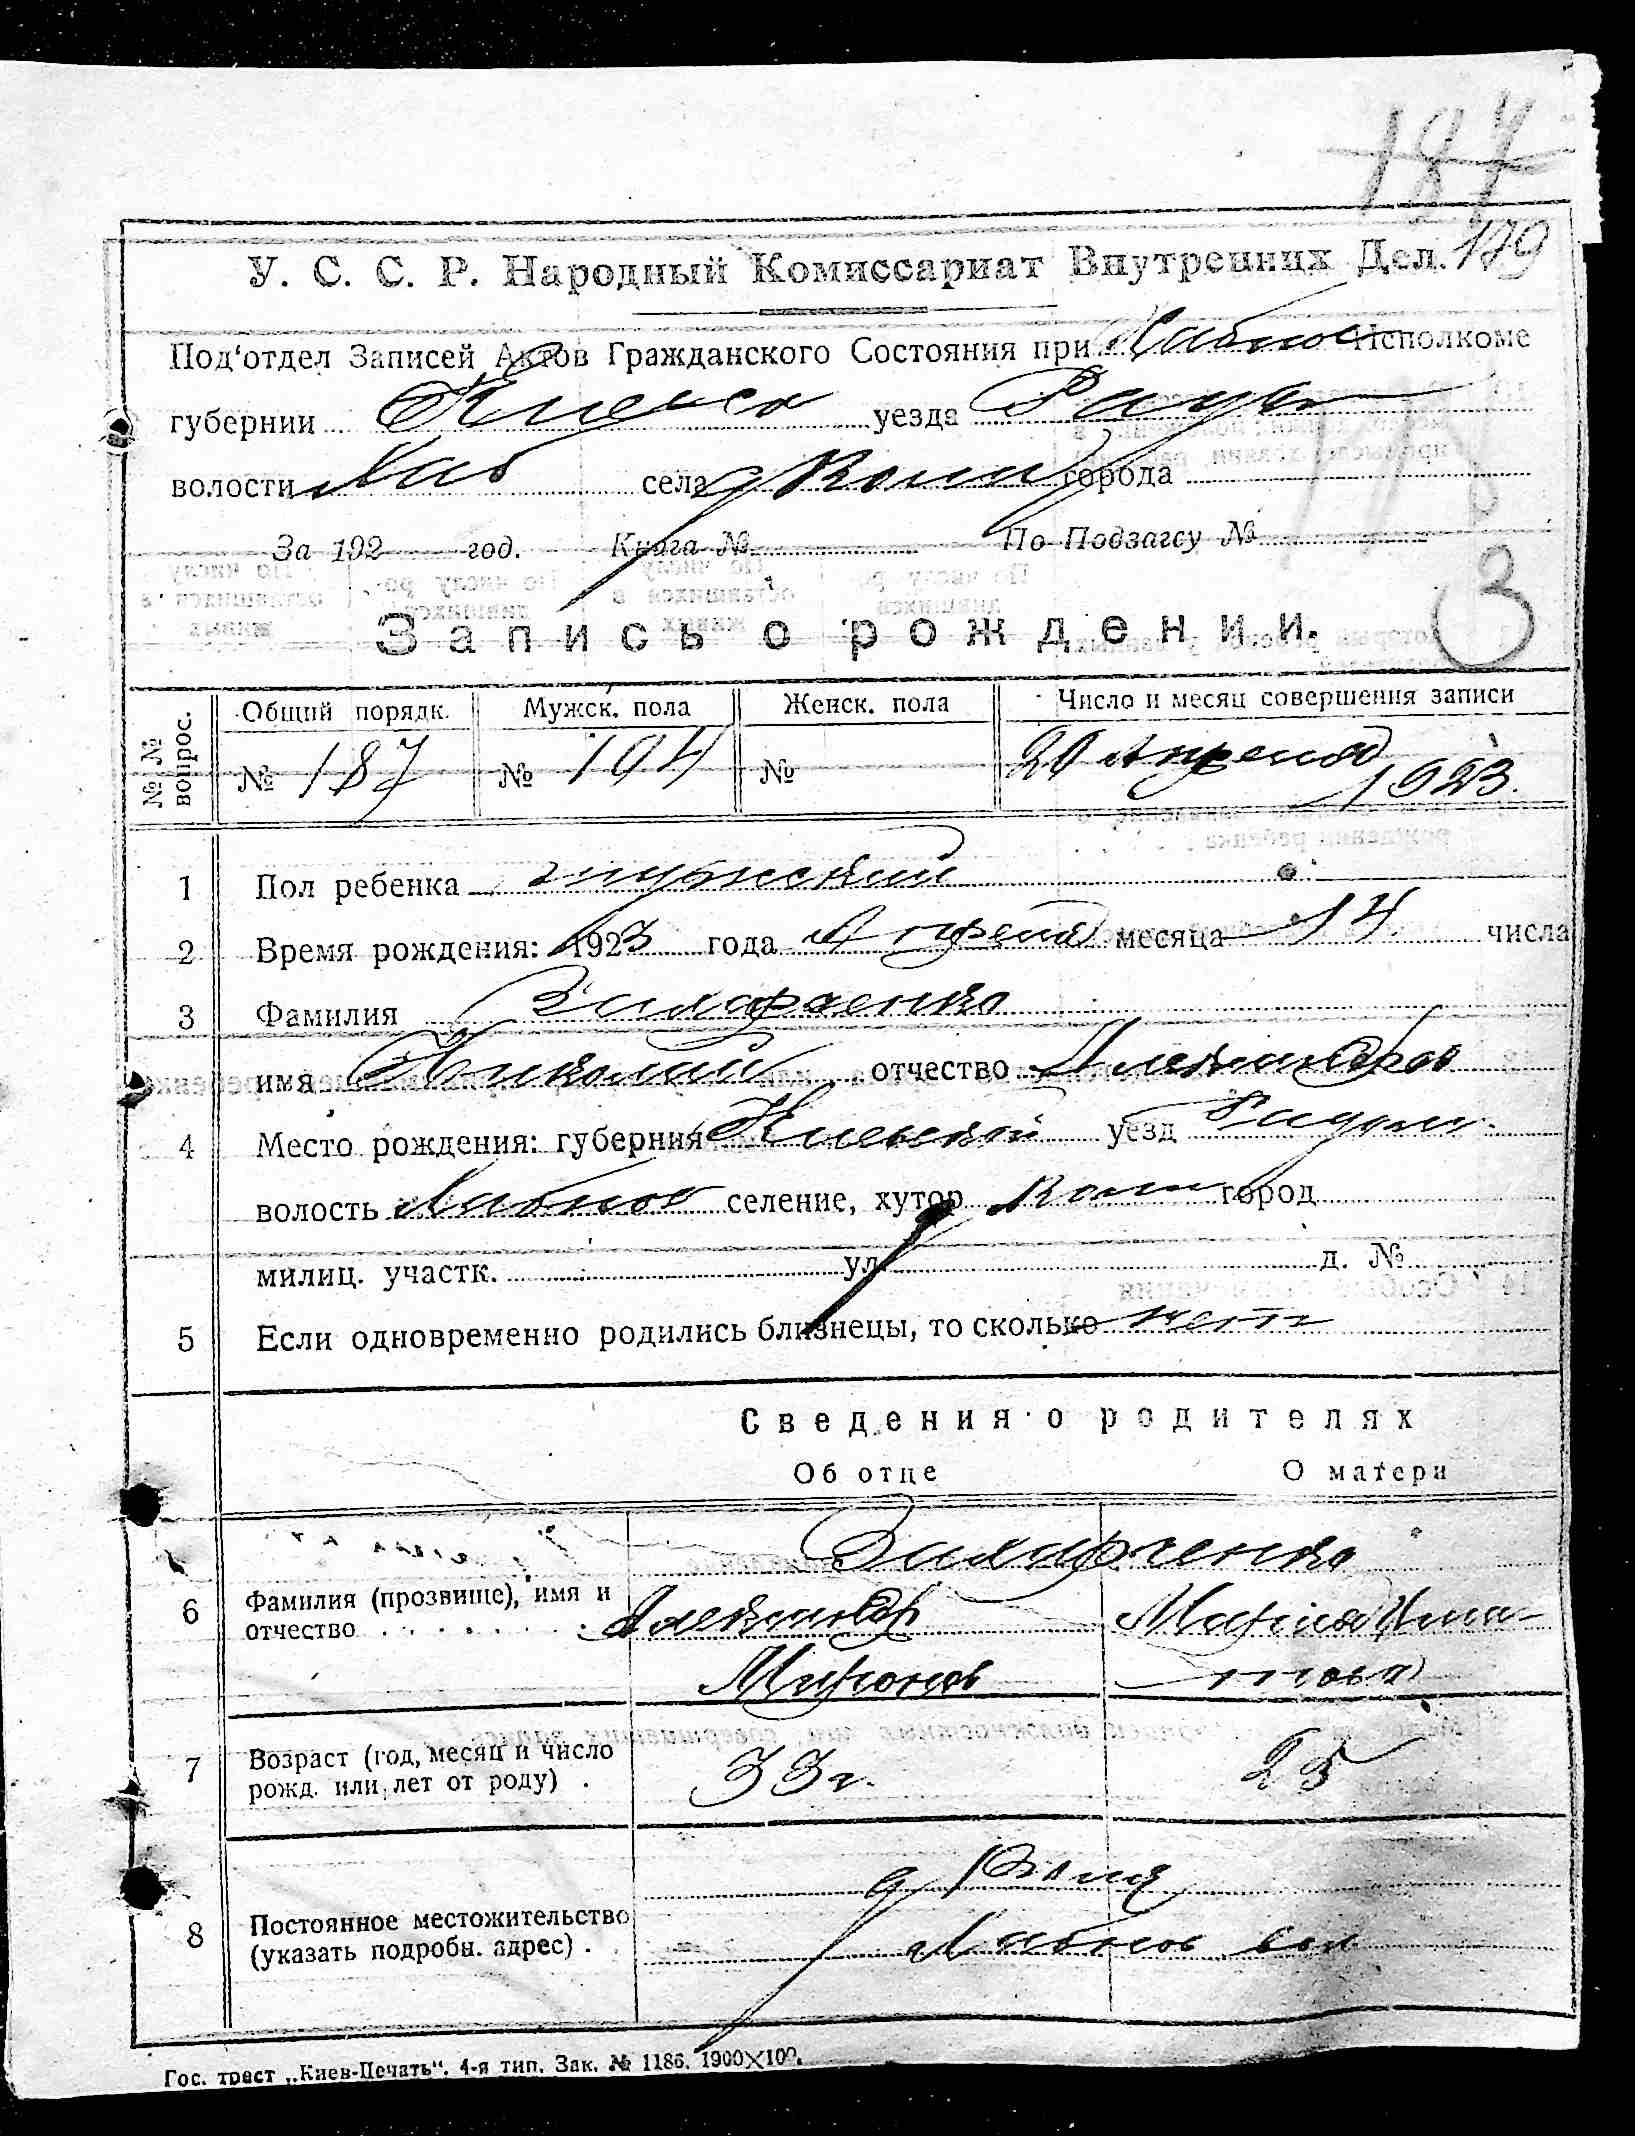 187
179
У. С. С. Р. Народный Комиссариат Внутренних Дел.
Под'отдел Записей Актов Гражданского Состояния при Хабное Исполкоме
губернии Киевск уезда Радом
волости Хаб села города
За 192 год. Книга № По Подзагсу №
3
Запись о рождении.
№№ вопрос. Общий порядк. Мужск. пола Женск. пола Число и месяц совершения записи
№ 187 № 104 № 20 Апреля 1923.
1 Пол ребенка мужский
2 Время рождения: 1923 года Апреля месяца 14 числа
3 Фамилия Захарченко
имя Николай отчество Александров
4 Место рождения: губерния Киевской уезд Радом.
волость Хабное селение, хутор город
милиц. участк. ул. д. №
5 Если одновременно родились близнецы, то сколько нет
Сведения о родителях
Об отце О матери
Захарченко
6 Фамилия (прозвище), имя и отчество Александр Миронов Мария
7 Возраст (год, месяц и число рожд. или лет от роду) . 33 г. 25
8 Постоянное местожительство (указать подробн. адрес) . Хабное вол
Гос. трест „Киев-Печать“. 4-я тип. Зак. № 1186. 1900×100.